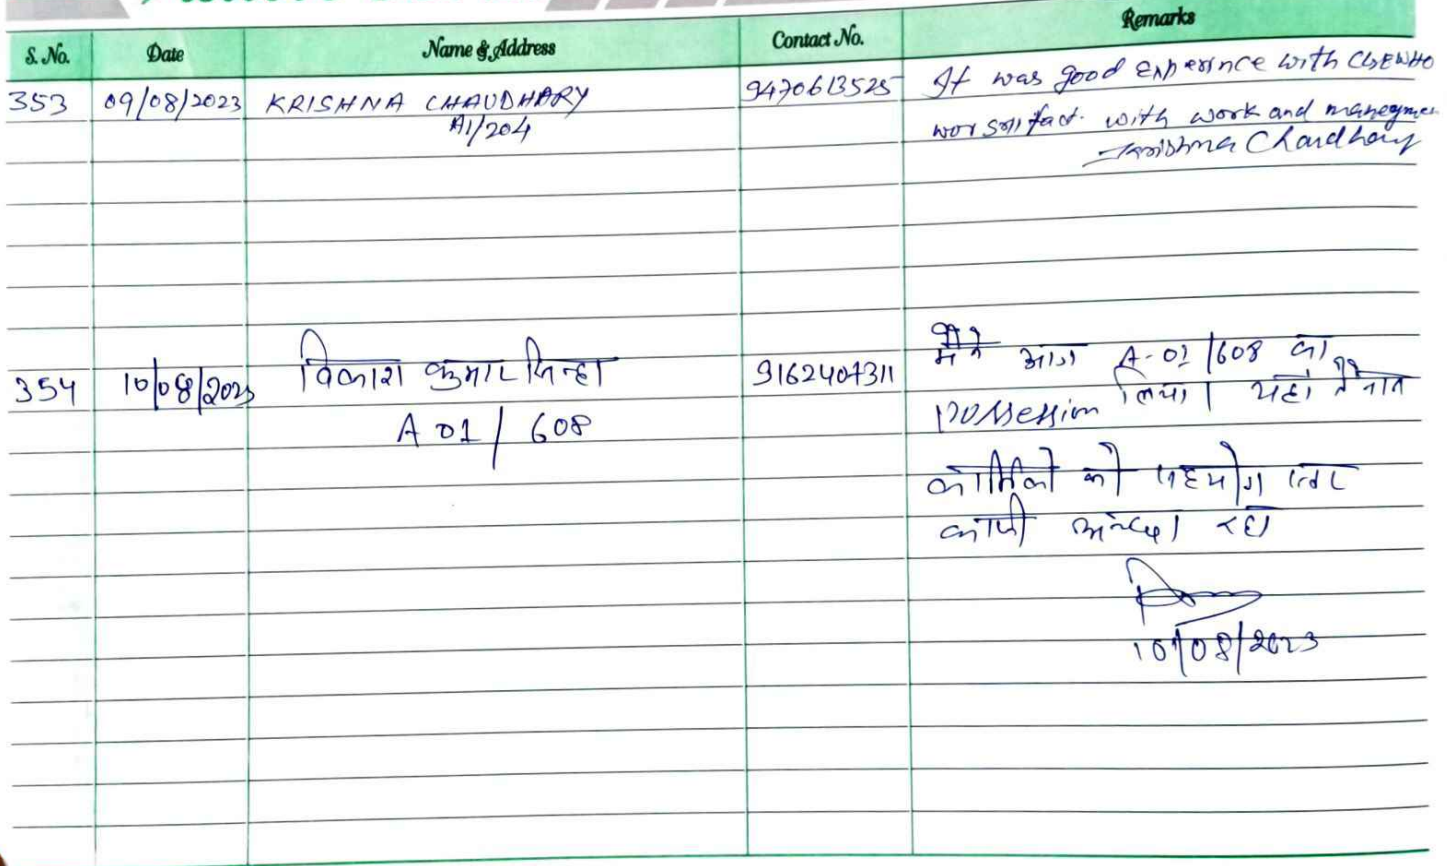 S. No. Date Name & Address Contact No. Remarks
353 09/08/2023 KRISHNA CHAUDHARY 9470613525 It was good experince with CGEWHO
A1/204 with work and
Krishna Chaudhary
354 10/08/2023 विकाश कुमार सिन्हा 9162407311 मैंने आज A-01/608 का
A 01/608 possession लिया। यहाँ तैनात
कार्मिकों का सहयोग स्तर
काफी अच्छा रहा
10/08/2023